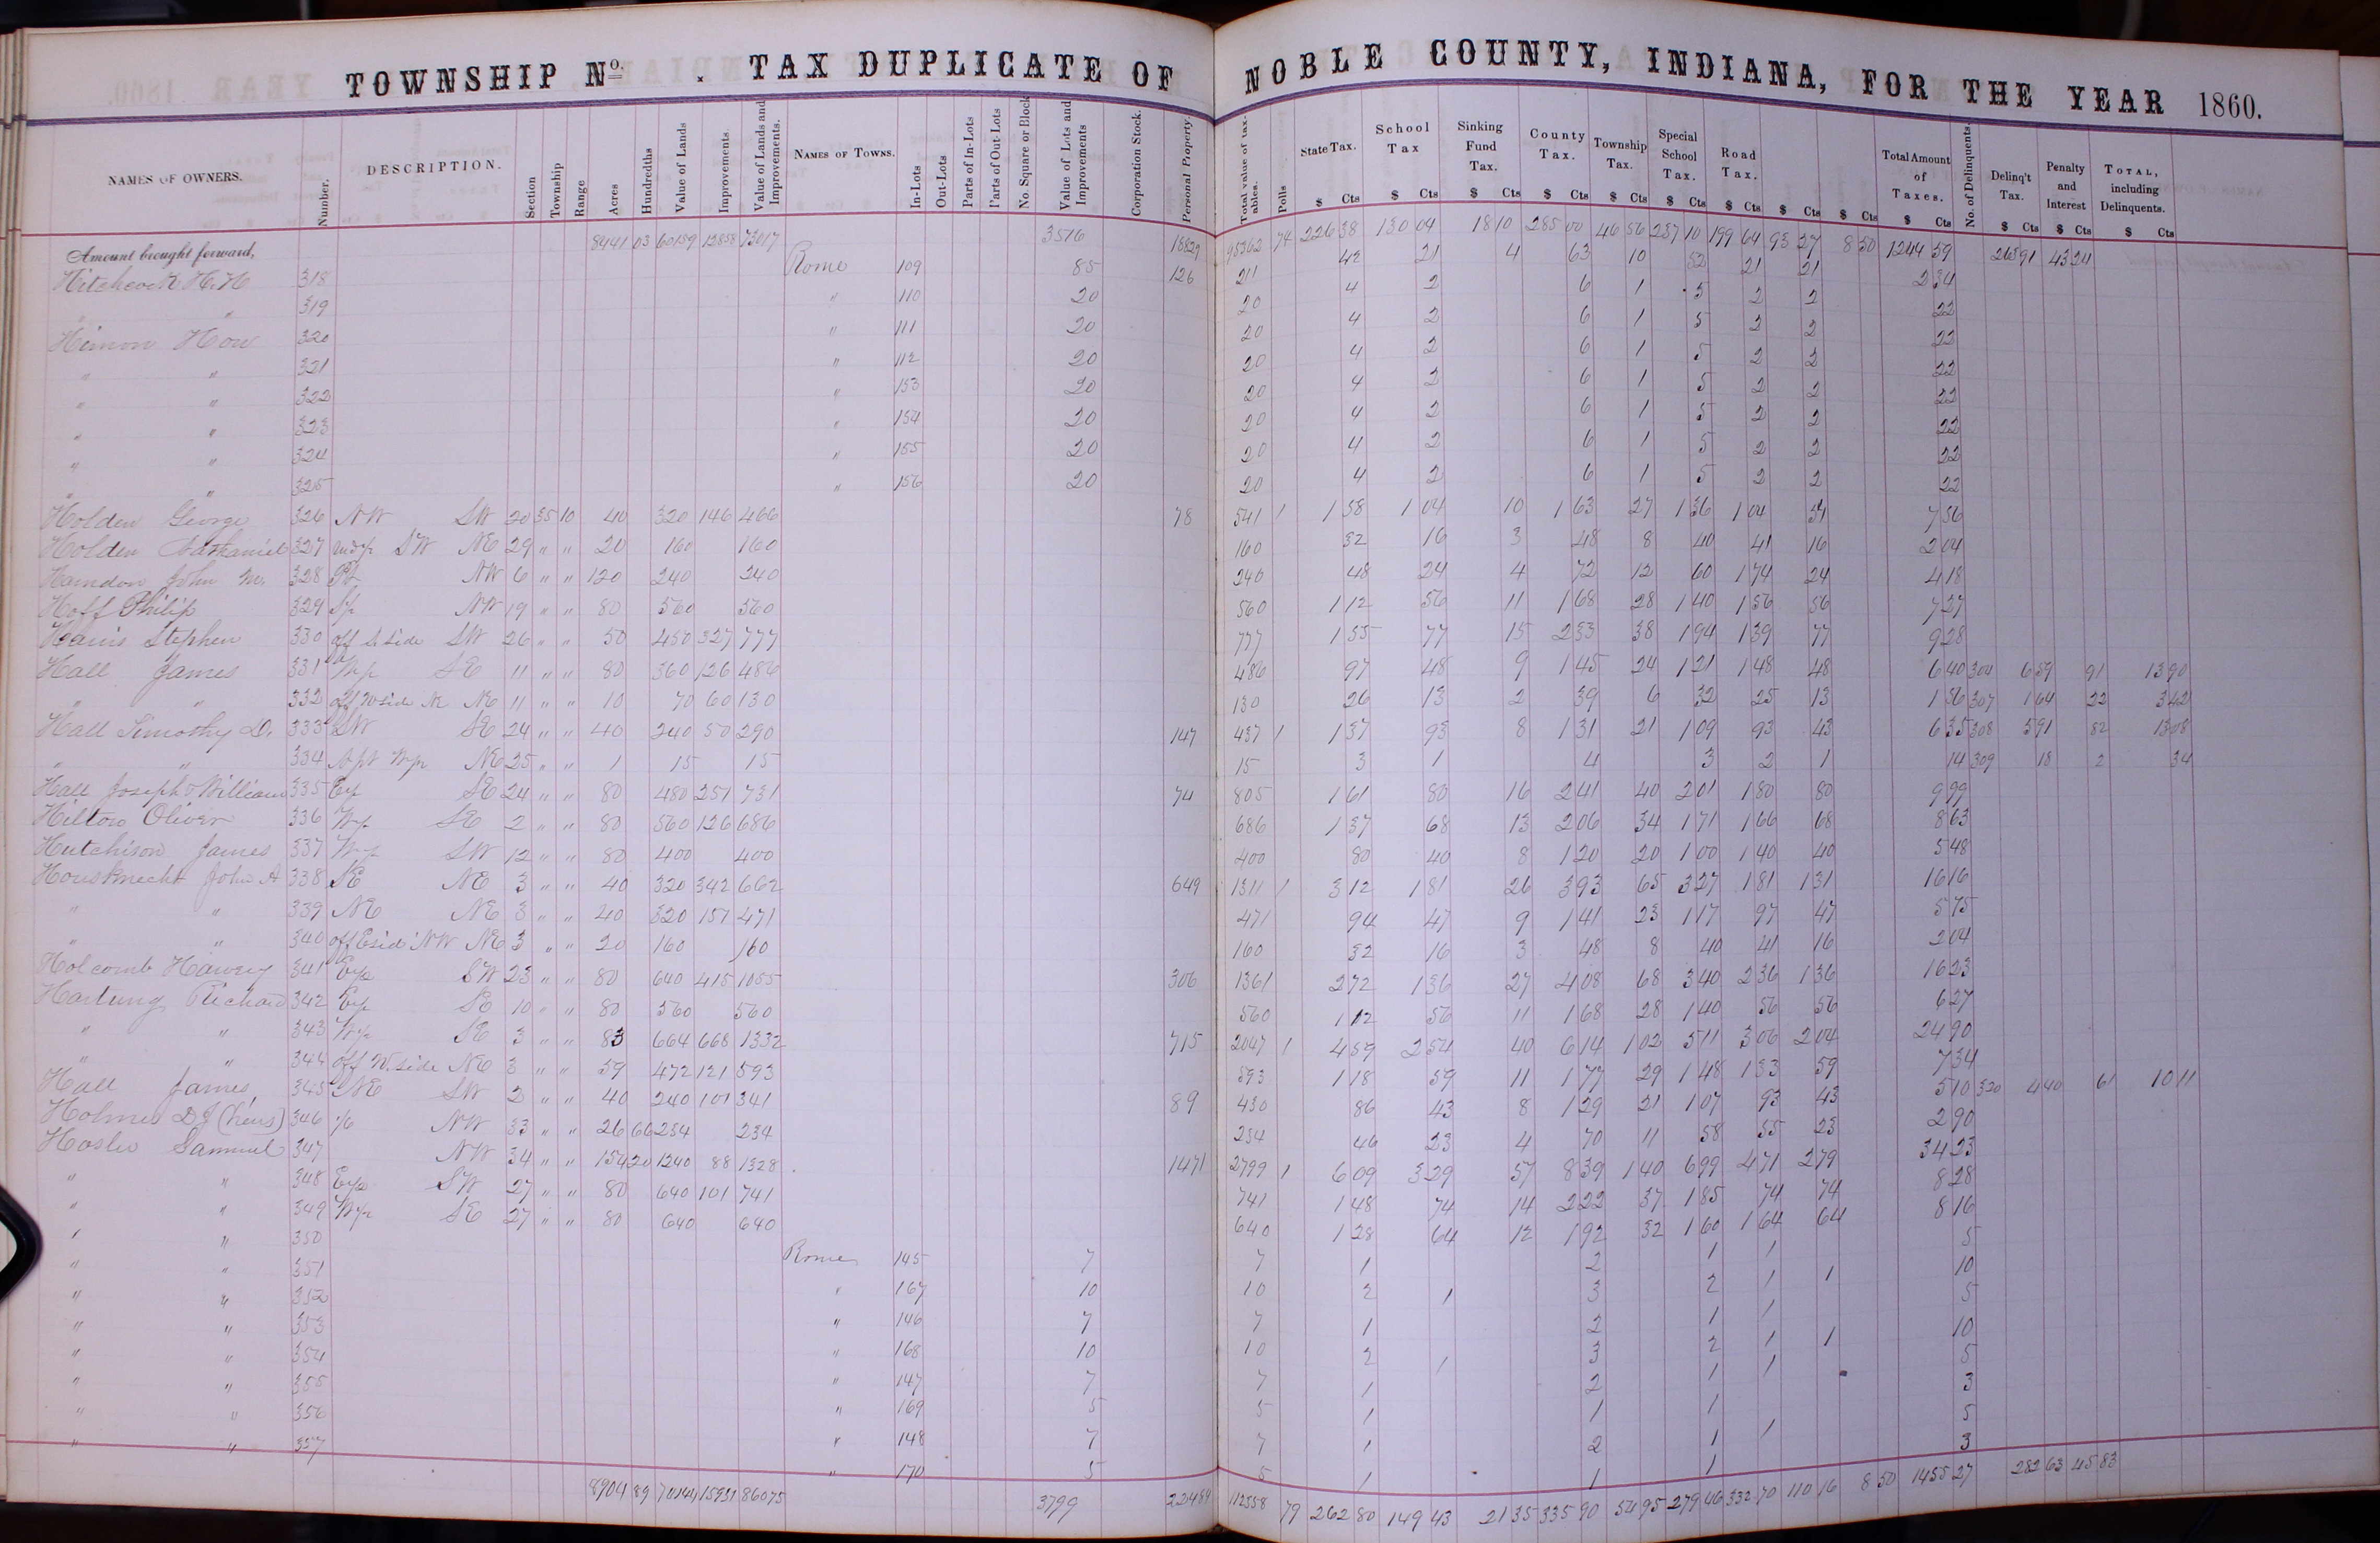 TOWNSHIP No. . TAX DUPLICATE OF NOBLE COUNTY, INDIANA, FOR THE YEAR 1860.
NAMES OF OWNERS. Number. DESCRIPTION. Section Township Range Acres Hundredths Value of Lands Improvements Value of Lands and Improvements. NAMES OF TOWNS. In-Lots Out-Lots Parts of In-Lots Parts of Out-Lots No. Square or Block Value of Lots and Improvements Corporation Stock. Personal Property. Total value of taxables. Polls State Tax. School Tax Sinking Fund Tax. County Tax. Township Tax. Special School Tax. Road Tax. Total Amount of Taxes. No. of Delinquents Delinq't Tax. Penalty and Interest TOTAL, including Delinquents.
$ Cts $ Cts $ Cts $ Cts $ Cts $ Cts $ Cts $ Cts $ Cts $ Cts $ Cts $ Cts $ Cts
Amount brought forward, 8441 03 60159 12858 73017 3516 18829 95362 74 226 38 130 04 18 10 285 00 46 56 237 10 199 64 93 27 8 50 1244 59 265 91 43 24
Hitchcock H. H 318 Rome 109 85 126 211 42 21 4 63 10 52 21 21 2 34
" " 319 " 110 20 20 4 2 6 1 5 2 2 22
Himon Hon 320 " 111 20 20 4 2 6 1 5 2 2 22
" " 321 " 112 20 20 4 2 6 1 5 2 2 22
" " 322 " 153 20 20 4 2 6 1 5 2 2 22
" " 323 " 154 20 20 4 2 6 1 5 2 2 22
" " 324 " 155 20 20 4 2 6 1 5 2 2 22
" " 325 " 156 20 20 4 2 6 1 5 2 2 22
Holden George 326 NW SW 20 35 10 40 320 146 466 78 541 1 1 58 1 04 10 1 63 27 1 36 1 04 54 7 56
Holden Nathaniel 327 SW NE 29 " " 20 160 160 160 32 16 3 48 8 40 41 16 2 04
Hamdon John M. 328 Pt NW 6 " " 120 240 240 240 48 24 4 72 12 60 1 74 24 4 18
Hoff Philip 329 NW 19 " " 80 560 560 560 1 12 56 11 1 68 28 1 40 1 56 56 7 27
Harris Stephen 330 off S. side SW 26 " " 50 450 327 777 777 1 55 77 15 2 33 38 1 94 1 39 77 9 28
Hall James 331 SE 11 " " 80 360 126 486 486 97 48 9 1 45 24 1 21 1 48 48 6 40 304 6 59 91 13 90
" " 332 NE 11 " " 10 70 60 130 130 26 13 2 39 6 32 25 13 1 56 307 1 64 22 3 42
Hall Timothy D. 333 SW SE 24 " " 40 240 50 290 147 437 1 1 37 93 8 1 31 21 1 09 93 43 6 35 308 5 91 82 13 08
" " 334 NE 25 " " 1 15 15 15 3 1 4 3 2 1 14 309 18 2 34
Hall Joseph & William 335 SE 24 " " 80 480 251 731 74 805 1 61 80 16 2 41 40 2 01 1 80 80 9 99
Hilton Oliver 336 SE 2 " " 80 560 126 686 686 1 37 68 13 2 06 34 1 71 1 66 68 8 63
Hutchison James 337 SW 12 " " 80 400 400 400 80 40 8 1 20 20 1 00 1 40 40 5 48
Housknecht John A 338 SE NE 3 " " 40 320 342 662 649 1311 1 3 12 1 81 26 3 93 65 3 27 1 81 1 31 16 16
" " 339 NE NE 3 " " 40 320 151 471 471 94 47 9 1 41 23 1 17 97 47 5 75
" " 340 off E side NW NE 3 " " 20 160 160 160 32 16 3 48 8 40 41 16 2 04
Holcomb Harvey 341 SW 23 " " 80 640 415 1055 306 1361 2 72 1 36 27 4 08 68 3 40 2 36 1 36 16 23
Hartung Richard 342 SE 10 " " 80 560 560 560 1 12 56 11 1 68 28 1 40 56 56 6 27
" " 343 SE 3 " " 83 664 668 1332 715 2047 1 4 59 2 54 40 6 14 1 02 5 11 3 06 2 04 24 90
" " 344 off W. side NE 3 " " 59 472 121 593 593 1 18 59 11 1 77 29 1 48 1 33 59 7 34
Hall James 345 NE SW 2 " " 40 240 101 341 89 430 86 43 8 1 29 21 1 07 93 43 5 10 320 4 40 61 10 11
Holmes D J (heirs) 346 NW 33 " " 26 66 234 234 234 46 23 4 70 11 58 55 23 2 90
Hosler Samuel 347 NW 34 " " 154 20 1240 88 1328 1471 2799 1 6 09 3 29 57 8 39 1 40 6 99 4 71 2 79 34 23
" " 348 SW 27 " " 80 640 101 741 741 1 48 74 14 2 22 37 1 85 74 74 8 28
" " 349 SE 27 " " 80 640 640 640 1 28 64 12 1 92 32 1 60 1 64 64 8 16
" " 350 Rome 145 7 7 1 2 1 1 5
" " 351 167 10 10 2 1 3 2 1 1 10
" " 352 " 146 7 7 1 2 1 1 5
" " 353 " 168 10 10 2 1 3 2 1 1 10
" " 354 " 147 7 7 1 2 1 1 5
" " 355 " 169 5 5 1 1 1 3
" " 356 " 148 7 7 1 2 1 1 5
" " 357 " 170 5 5 1 1 1 3
89 86075 3799 112358 79 262 80 149 43 21 35 335 90 54 95 279 46 332 70 110 16 8 50 1455 27 282 63 45 83